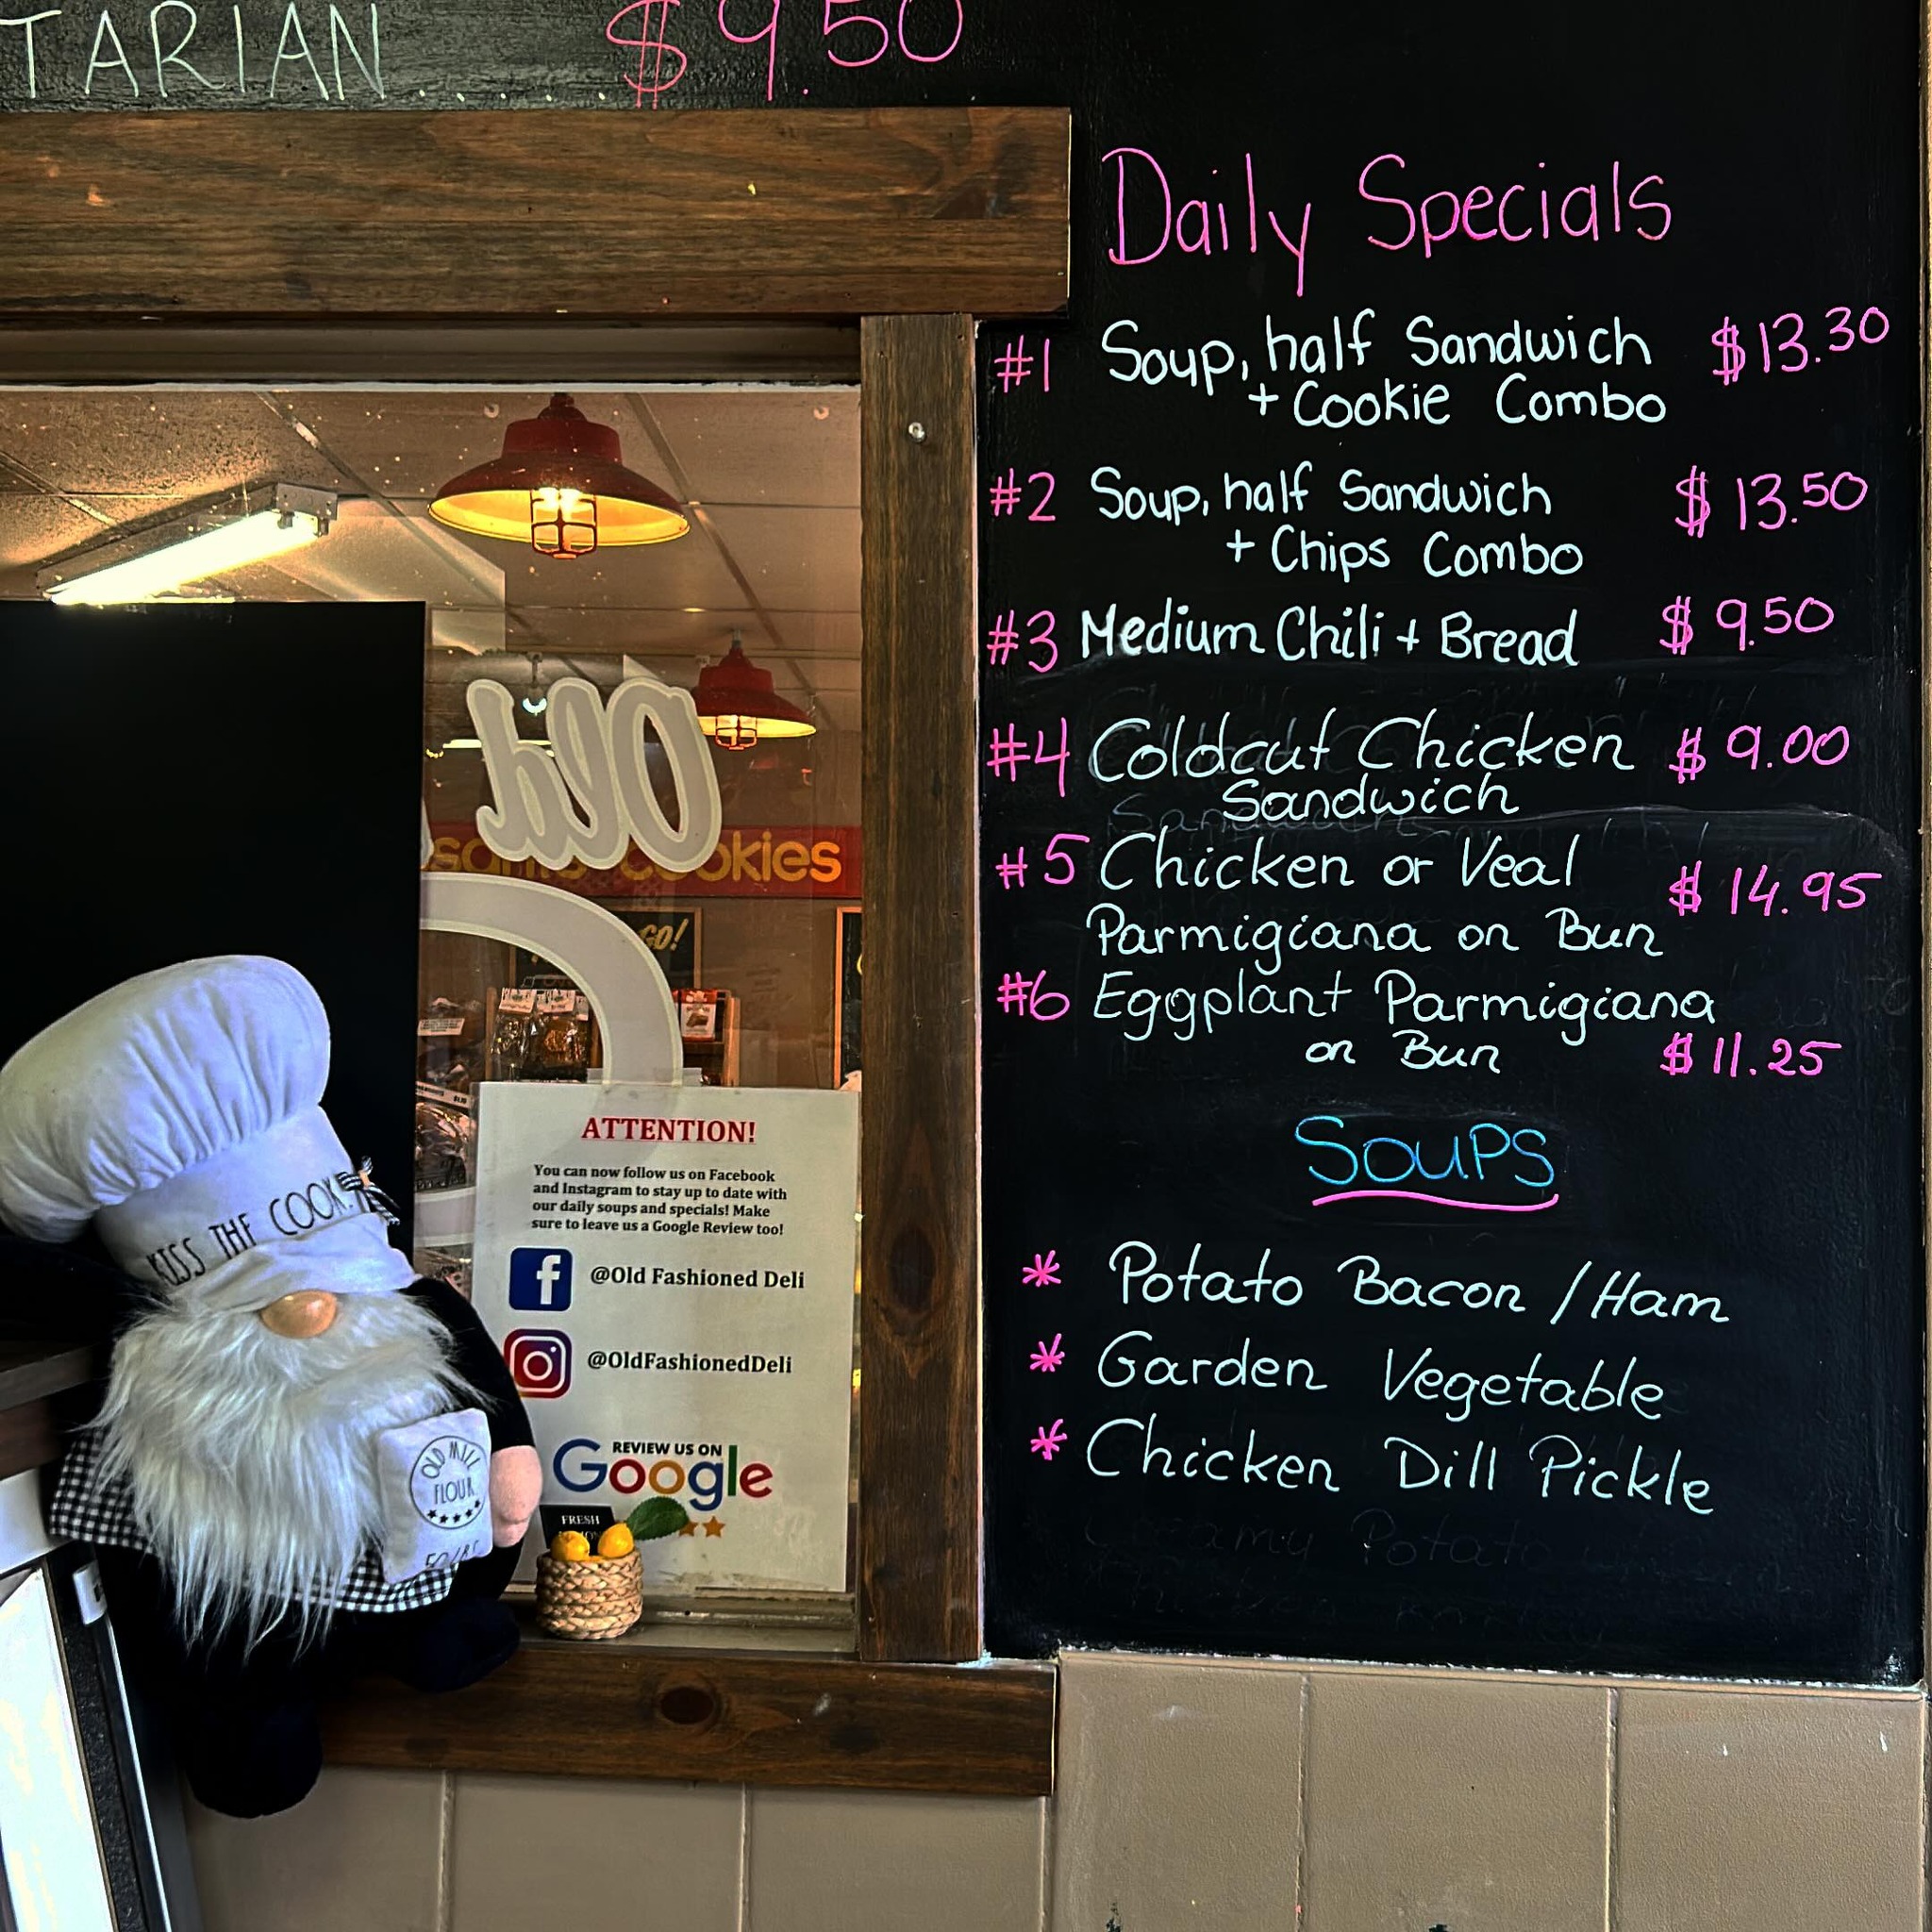 TARIAN...... $9.50
Daily Specials
#1 Soup, half Sandwich $13.30
+ Cookie Combo
#2 Soup, half Sandwich $13.50
+ Chips Combo
#3 Medium Chili + Bread $9.50
#4 Coldcut Chicken $9.00
Sandwich
#5 Chicken or Veal $14.95
Parmigiana on Bun
#6 Eggplant Parmigiana
on Bun $11.25
SOUPS
* Potato Bacon / Ham
* Garden Vegetable
* Chicken Dill Pickle
Old
cookies
GO!
ATTENTION!
You can now follow us on Facebook
and Instagram to stay up to date with
our daily soups and specials! Make
sure to leave us a Google Review too!
@Old Fashioned Deli
@OldFashionedDeli
REVIEW US ON
Google
FRESH
KISS THE COOK!
OLD MILL
FLOUR